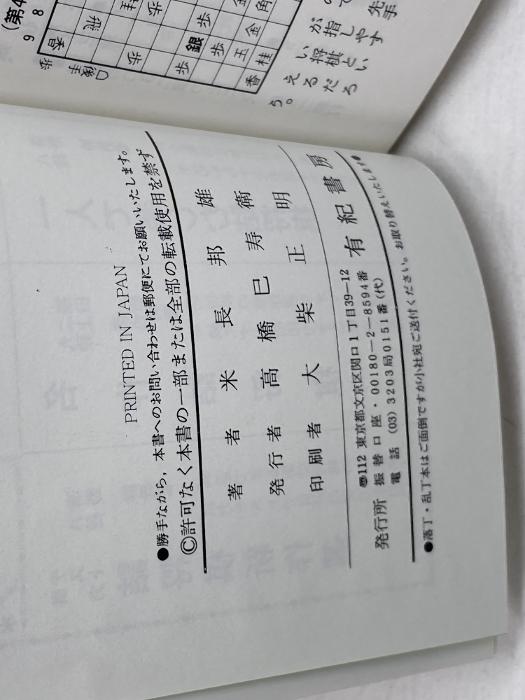 PRINTED IN JAPAN
●勝手ながら，本書へのお問い合わせは郵便にてお願いいたします。
Ⓒ許可なく本書の一部または全部の転載使用を禁ず
著者 米長邦雄
発行者 高橋巳寿衛
印刷者 大柴正明
発行所 有紀書房
〠112 東京都文京区関口1丁目39―12
振替口座・00180―2―8594番
電話 (03) 3203局0151番(代)
●落丁・乱丁本はご面倒ですが小社宛ご送付ください。お取り替えいたします。
(第4
9 8
先手
が指しやす
い将棋とい
えるだろ
う。